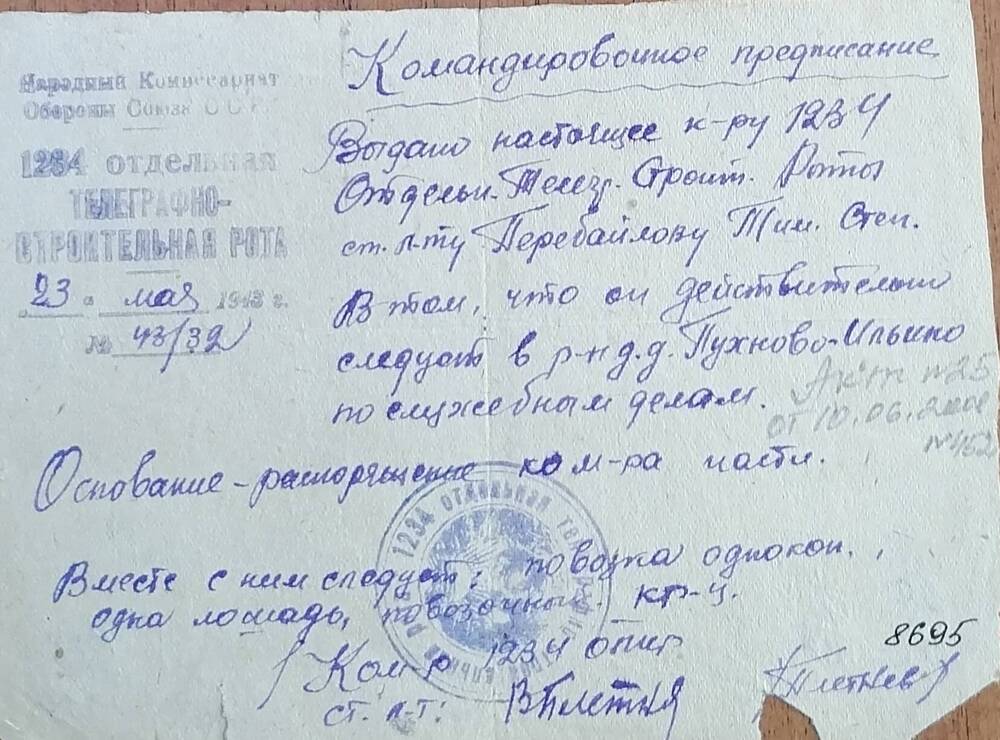 Народный Комиссариат
Обороны Союза ССР
1234 отдельная
ТЕЛЕГРАФНО-
СТРОИТЕЛЬНАЯ РОТА
23 мая 1943 г.
№ 43/32
Командировочное предписание
Выдано настоящее к-ру 1234
Отдельн. Телегр. Строит. Роты
ст. л-ту Перебайлову Тим. Степ.
В том, что он действительно
следует в р-н д.д. Пухново-Ильино
по служебным делам.
Акт №25
от 10.06.
№452
Основание - распоряжение ком-ра части.
Вместе с ним следует: повозка однокон.,
одна лошадь, повозочный кр-ц.
1234 ОТДЕЛЬНАЯ
Ком-р 1234 отср
ст. л-т:
8695